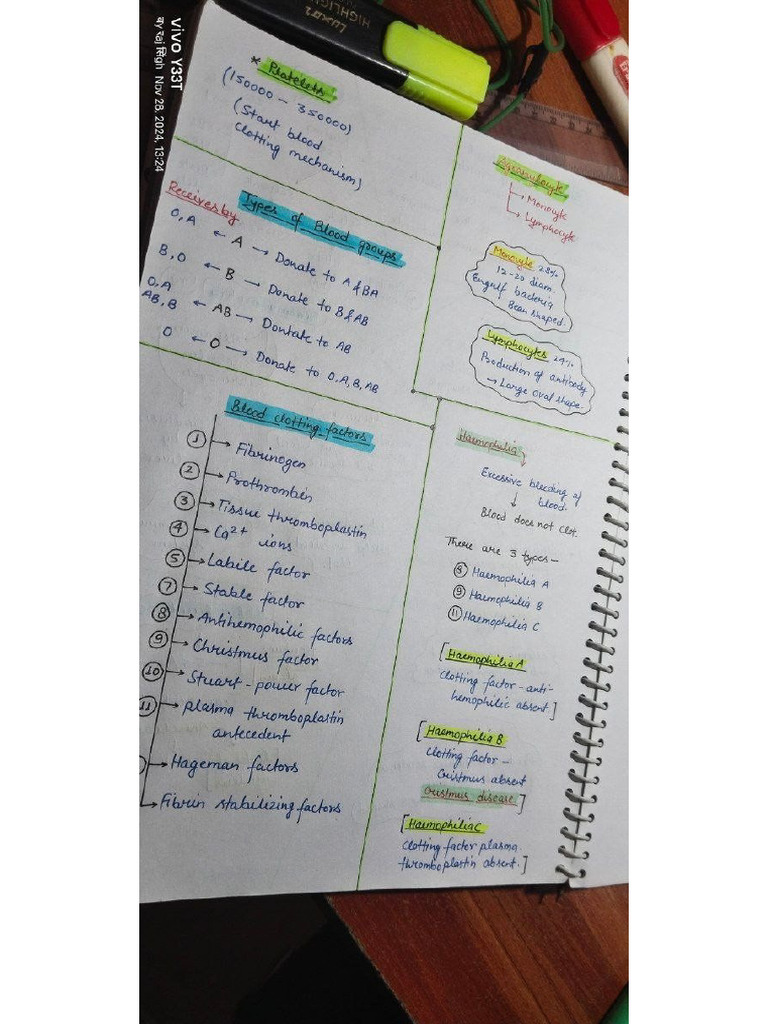 vivo Y33T
Nov 28, 2024, 13:24
LUXOR
HIGHLIGHTER
* Platelets
(150000 - 350000)
(Start blood
clotting mechanism)
Types of Blood groups
Receives by
O, A ← A → Donate to A & BA
B, O ← B → Donate to B & AB
O, A
AB, B ← AB → Dontate to AB
O ← O → Donate to O, A, B, AB
Blood clotting factors
1 → Fibrinogen
2 → Prothrombin
3 → Tissue thromboplastin
4 → Ca2+ ions
5 → Labile factor
7 → Stable factor
8 → Antihemophilic factors
9 → Christmus factor
10 → Stuart - power factor
11 → plasma thromboplastin
antecedent
→ Hageman factors
→ Fibrin stabilizing factors
Agranulocyte
→ Monocyte
→ Lymphocyte
Monocyte
12-20 diam.
Engulf bacteria
Bean shaped.
Lymphocytes 24%
Production of antibody
→ Large oval shape.
Haemophilia
Excessive bleeding of
blood.
↓
Blood does not clot.
There are 3 types -
8 Haemophilia A
9 Haemophilia B
11 Haemophilia C
[Haemophilia A
Clotting factor - anti-
hemophilic absent]
[Haemophilia B
Clotting factor -
Cristmus absent
Cristmus disease]
[Haemophilia C
Clotting factor plasma
thromboplastin absent.]